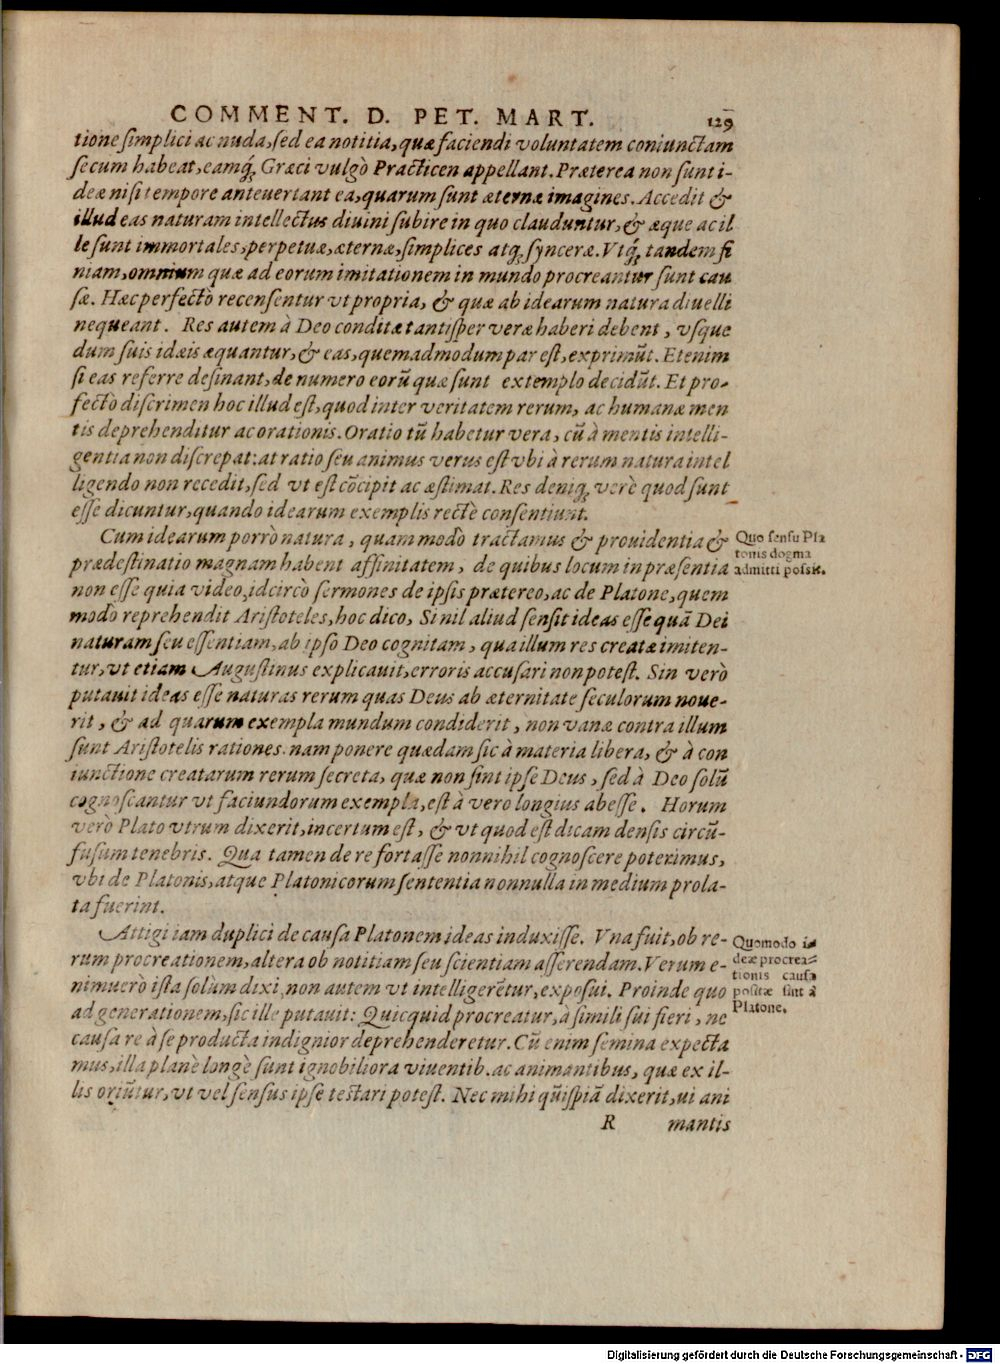 COMMENT. D. PET. MART. 129
tione simplici ac nuda, sed ea notitia, quæ faciendi voluntatem coniunctam
secum habeat, eamq́; Græci vulgò Practicen appellant. Præterea non sunt i-
deæ nisi tempore antevertant ea, quarum sunt æternæ imagines. Accedit &
illud eas naturam intellectus diuini subire in quo clauduntur, & æque ac il
le sunt immortales, perpetuæ, æternæ, simplices atq; synceræ. Vtq́; tandem fi
niam, omnium quæ ad eorum imitationem in mundo procreantur sunt cau
sæ. Hæc perfectò recensentur vt propria, & quæ ab idearum natura diuelli
nequeant. Res autem à Deo conditæ tantisper veræ haberi debent, vsque
dum suis idæis æquantur, & eas, quemadmodum par est, exprimūt. Etenim
si eas referre desinant, de numero eorū quæ sunt extemplo decidūt. Et pro-
fectò discrimen hoc illud est, quod inter veritatem rerum, ac humanæ men
tis deprehenditur ac orationis. Oratio tū habetur vera, cū à mentis intelli-
gentia non discrepat: at ratio seu animus verus est vbi à rerum natura intel
ligendo non recedit, sed vt est cōcipit ac æstimat. Res deniq; verè quod sunt
esse dicuntur, quando idearum exemplis rectè consentiunt.
Cum idearum porrò natura, quam modò tractamus & prouidentia &
prædestinatio magnam habent affinitatem, de quibus locum in præsentia
non esse quia video, idcircò sermones de ipsis prætereo, ac de Platone, quem
modò reprehendit Aristoteles, hoc dico, Si nil aliud sensit ideas esse quā Dei
naturam seu essentiam, ab ipso Deo cognitam, qua illum res creatæ imiten-
tur, vt etiam Augustinus explicauit, erroris accusari non potest. Sin verò
putauit ideas esse naturas rerum quas Deus ab æternitate seculorum noue-
rit, & ad quarum exempla mundum condiderit, non vanæ contra illum
sunt Aristotelis rationes. nam ponere quædam sic à materia libera, & à con
iunctione creatarum rerum secreta, quæ non sint ipse Deus, sed à Deo solū
cognoscantur vt faciundorum exempla, est à vero longius abesse. Horum
verò Plato vtrum dixerit, incertum est, & vt quod est dicam densis circū-
fusum tenebris. Qua tamen de re fortasse nonnihil cognoscere poterimus,
vbi de Platonis, atque Platonicorum sententia nonnulla in medium prola-
ta fuerint.
Quo sensu Pla
tonis dogma
admitti possit.
Attigi iam duplici de causa Platonem ideas induxisse. Vna fuit, ob re-
rum procreationem, altera ob notitiam seu scientiam asserendam. Verum e-
nimuerò ista solùm dixi, non autem vt intelligerētur, exposui. Proinde quo
ad generationem, sic ille putauit: Quicquid procreatur, à simili sui fieri, ne
causa re à se producta indignior deprehenderetur. Cū enim semina expecta
mus, illa planè longè sunt ignobiliora viuentib. ac animantibus, quæ ex il-
lis oriūtur, vt vel sensus ipse testari potest. Nec mihi quispiā dixerit, ui ani
Quomodo i-
deæ procrea-
tionis causa
positæ sint à
Platone.
R mantis
Digitalisierung gefördert durch die Deutsche Forschungsgemeinschaft - DFG